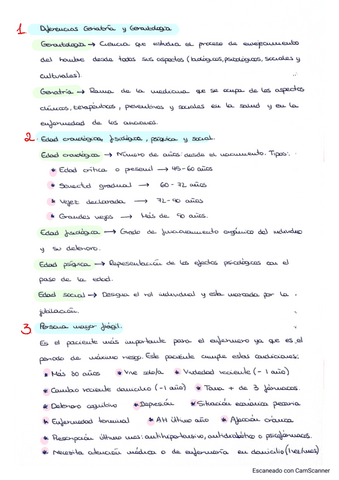 1 Diferencias Geriatría y Gerontología
Gerontología → Ciencia que estudia el proceso de envejecimiento
del hombre desde todos sus aspectos (biológicos, psicológicos, sociales y
culturales).
Geriatría → Rama de la medicina que se ocupa de los aspectos
clínicos, terapéuticos, preventivos y sociales en la salud y en la
enfermedad de los ancianos.
2 Edad cronológica, fisiológica, psíquica y social.
Edad cronológica → Número de años desde el nacimiento. Tipos:
* Edad crítica o presenil → 45-60 años
* Senectud gradual → 60-72 años
* Vejez declarada → 72-90 años
* Grandes viejos → Más de 90 años.
Edad fisiológica → Grado de funcionamiento orgánico del individuo
y su deterioro.
Edad psíquica → Representación de los efectos psicológicos con el
paso de la edad.
Edad social → Designa el rol individual y está marcada por la
jubilación.
3 Persona mayor frágil.
Es el paciente más importante para el enfermero ya que es el
periodo de máximo riesgo. Este paciente cumple estas condiciones:
* Más 80 años * Vive solo/a * Viudedad reciente (-1 año)
* Cambio reciente domicilio (-1 año) * Toma + de 3 fármacos.
* Deterioro cognitivo * Depresión * Situación económica precaria
* Enfermedad terminal * AH último año * Afección crónica
* Prescripción último mes: antihipertensivo, antidiabético o psicofármacos.
* Necesita atención médica o de enfermería en domicilio (1vez/mes)
Escaneado con CamScanner